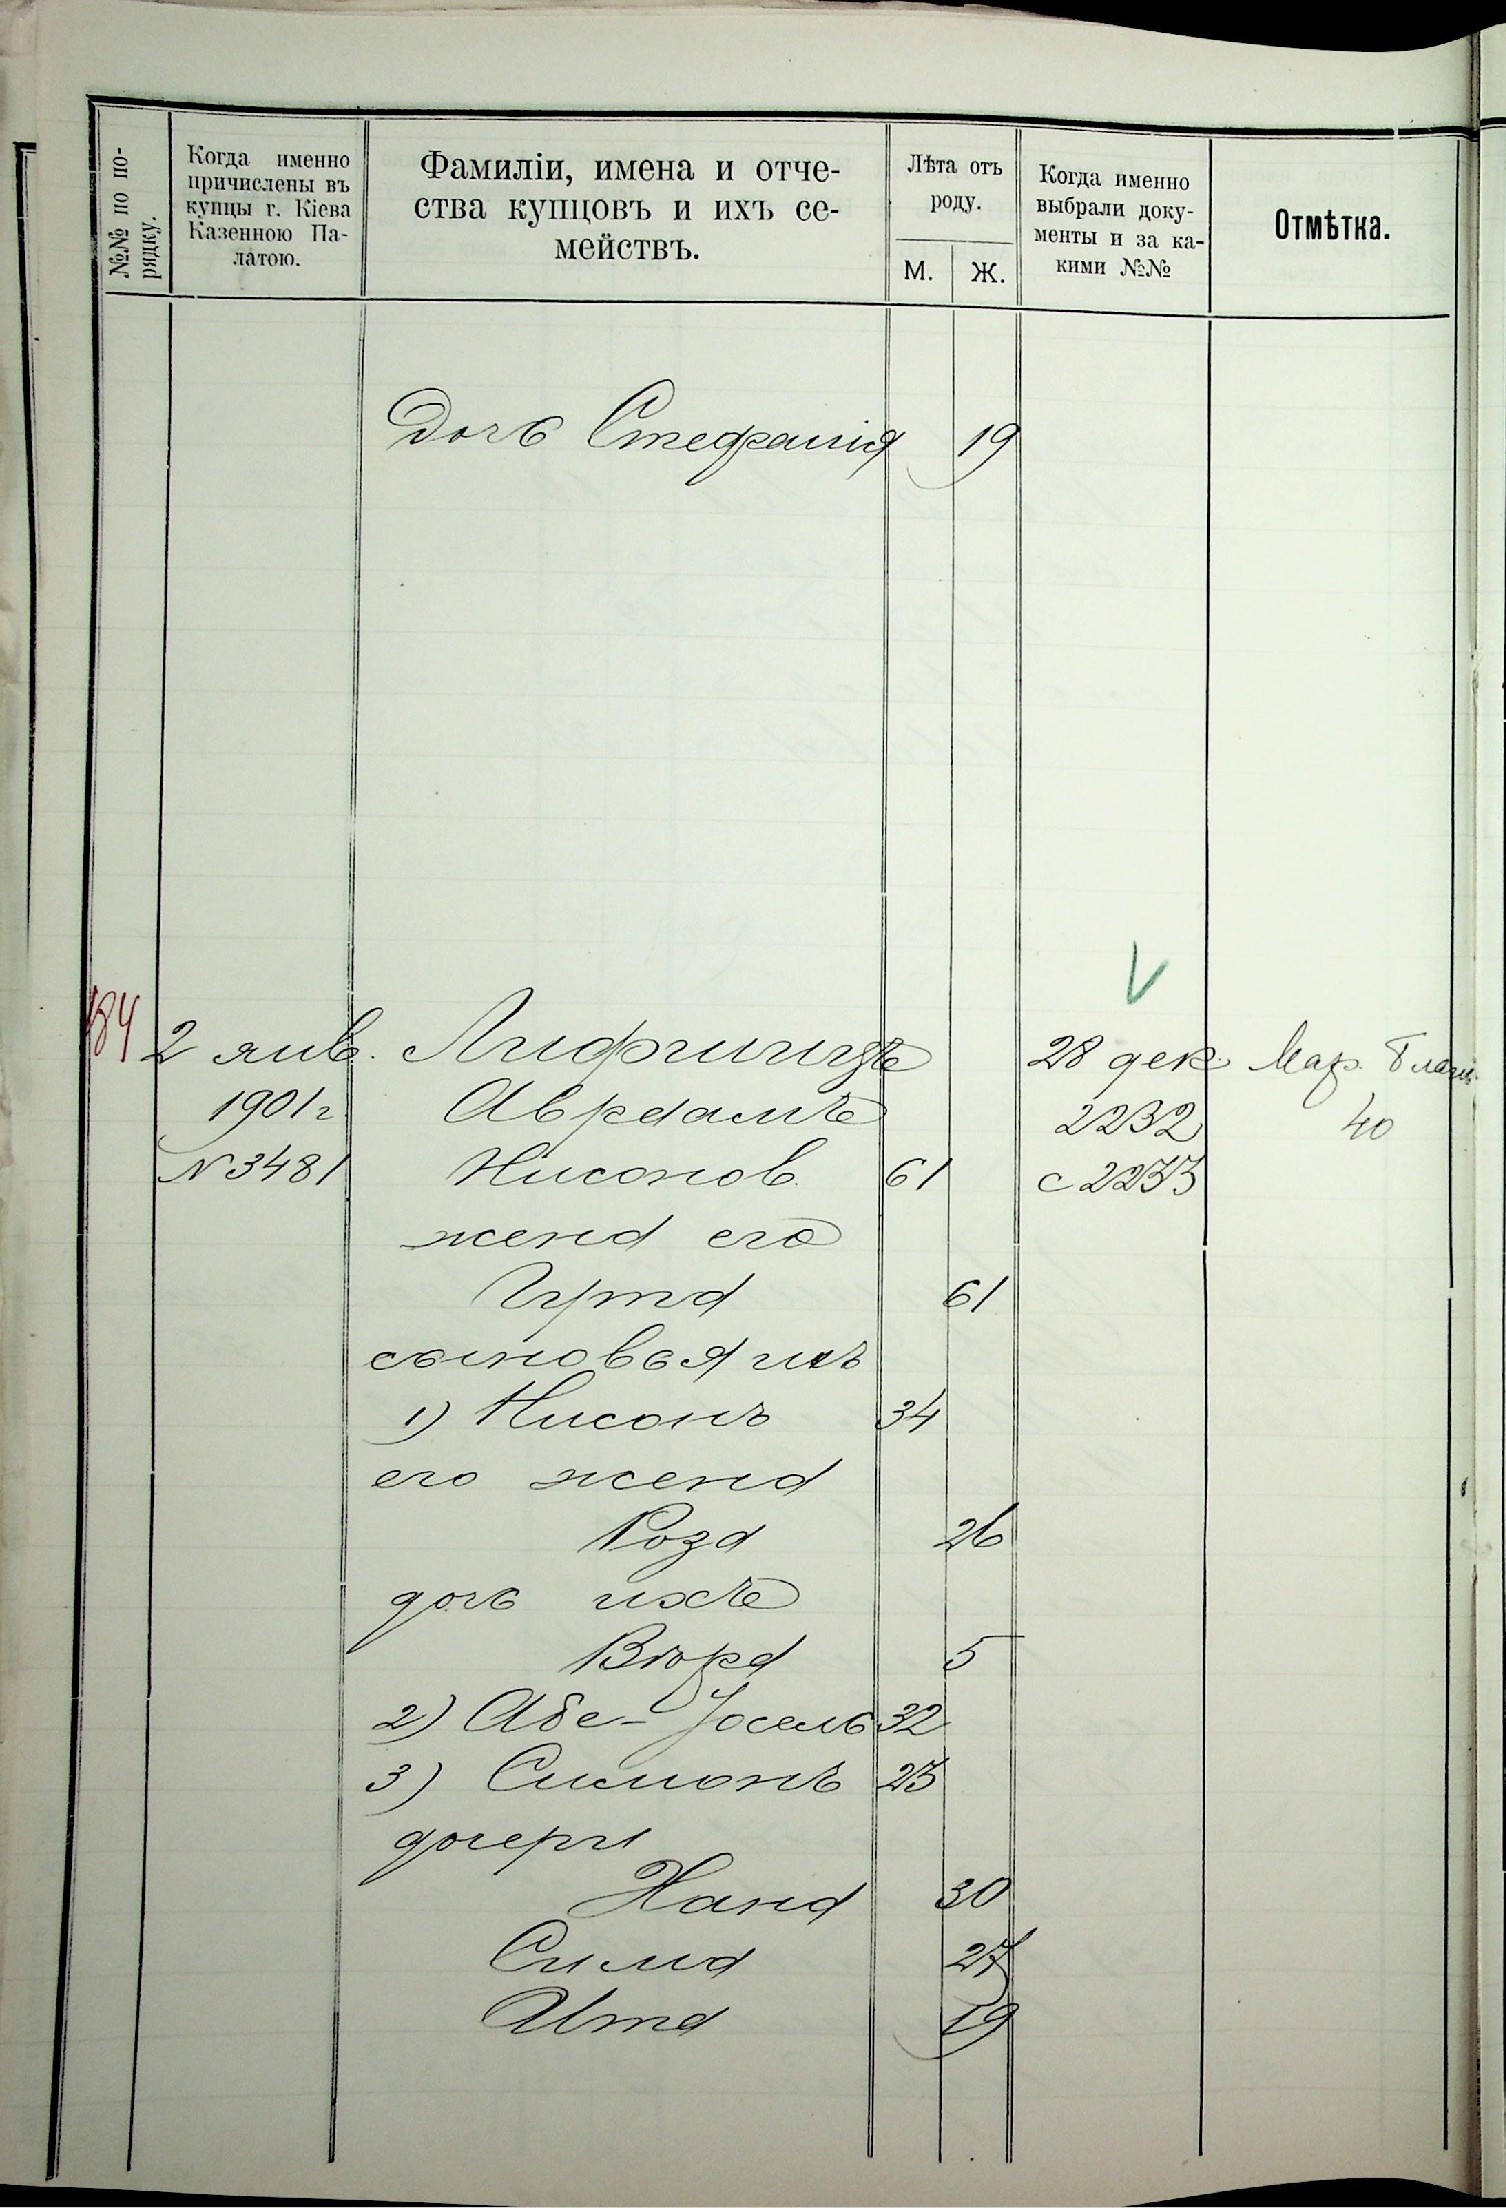 №№ по по-
рядку.
Когда именно
причислены въ
купцы г. Кіева
Казенною Па-
латою.
Фамиліи, имена и отче-
ства купцовъ и ихъ се-
мействъ.
Лѣта отъ
роду.
М. Ж.
Когда именно
выбрали доку-
менты и за ка-
кими №№
Отмѣтка.
Дочь Стефанія 19
184 2 янв. Лифшицъ 28 дек. Мар. Благ.
1901 г. Авраамъ 2232 40
N 3481 Нисонов. 61 с 2233
жена его
Гута 61
сыновья ихъ
1) Нисонъ 34
его жена
Роза 26
дочь ихъ
Вѣра 5
2) Абе-Іосель 32
3) Симонъ 23
дочери
Хана 30
Сима 27
Ита 19